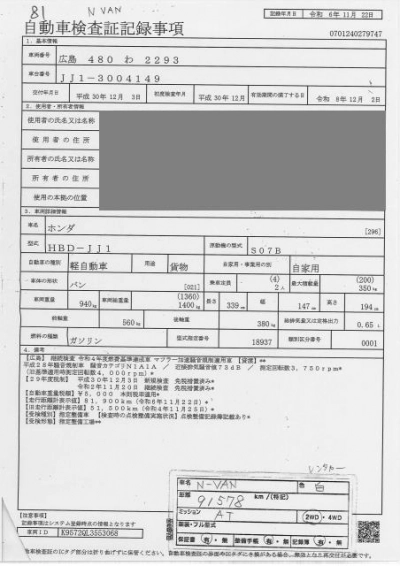 81 N VAN
自動車検査証記録事項
記録年月日 令和 6年11月 22日
0701240279747
1．基本情報
車両番号 広島 480 わ 2293
車台番号 JJ1-3004149
交付年月日 平成 30年 12月 3日 初度検査年月 平成 30年 12月 有効期間の満了する日 令和 8年 12月 2日
2．使用者・所有者情報
使用者の氏名又は名称
使用者の住所
所有者の氏名又は名称
所有者の住所
使用の本拠の位置
3．車両詳細情報
車名 ホンダ [296]
型式 HBD-JJ1 原動機の型式 S07B
自動車の種別 軽自動車 用途 貨物 自家用・事業用の別 自家用
車体の形状 バン [021] 乗車定員 (4) 2人 最大積載量 (200) 350kg
車両重量 940kg 車両総重量 (1360) 1400kg 長さ 339cm 幅 147cm 高さ 194cm
前軸重 560kg 後軸重 380kg 総排気量又は定格出力 0.65L
燃料の種類 ガソリン 型式指定番号 18937 類別区分番号 0001
4．備考
【広島】 継続検査 令和4年度燃費基準達成車 マフラー加速騒音規制適用車 【貨物】**
平成28年騒音規制車 騒音カテゴリN1A1A ／ 近接排気騒音値73dB ／ 測定回転数3,750rpm*
(旧基準適用時測定回転数4,000rpm)*
【29年度税制】 平成30年12月3日 新規検査 先税措置済み*
令和2年11月20日 継続検査 先税措置済み*
【自動車重量税額】¥5,000 本則税率適用*
【走行距離計表示値】91,900km(令和6年11月22日)*
【旧走行距離計表示値】51,500km(令和4年11月25日)*
【受検種別】指定整備車 【検査時の点検整備実施状況】点検整備記録簿記載あり*
【受検形態】指定整備工場*
レンタカー
車名 N-VAN 色 白
距離 91578 km／(特記)
ミッション AT 2WD・4WD
装備・フル型式
保証書 有・無 整備手帳 有・無 記録簿 有・無
【注意事項】
記録事項はシステム登録時点の情報となります
車両ID K9572QL3553068